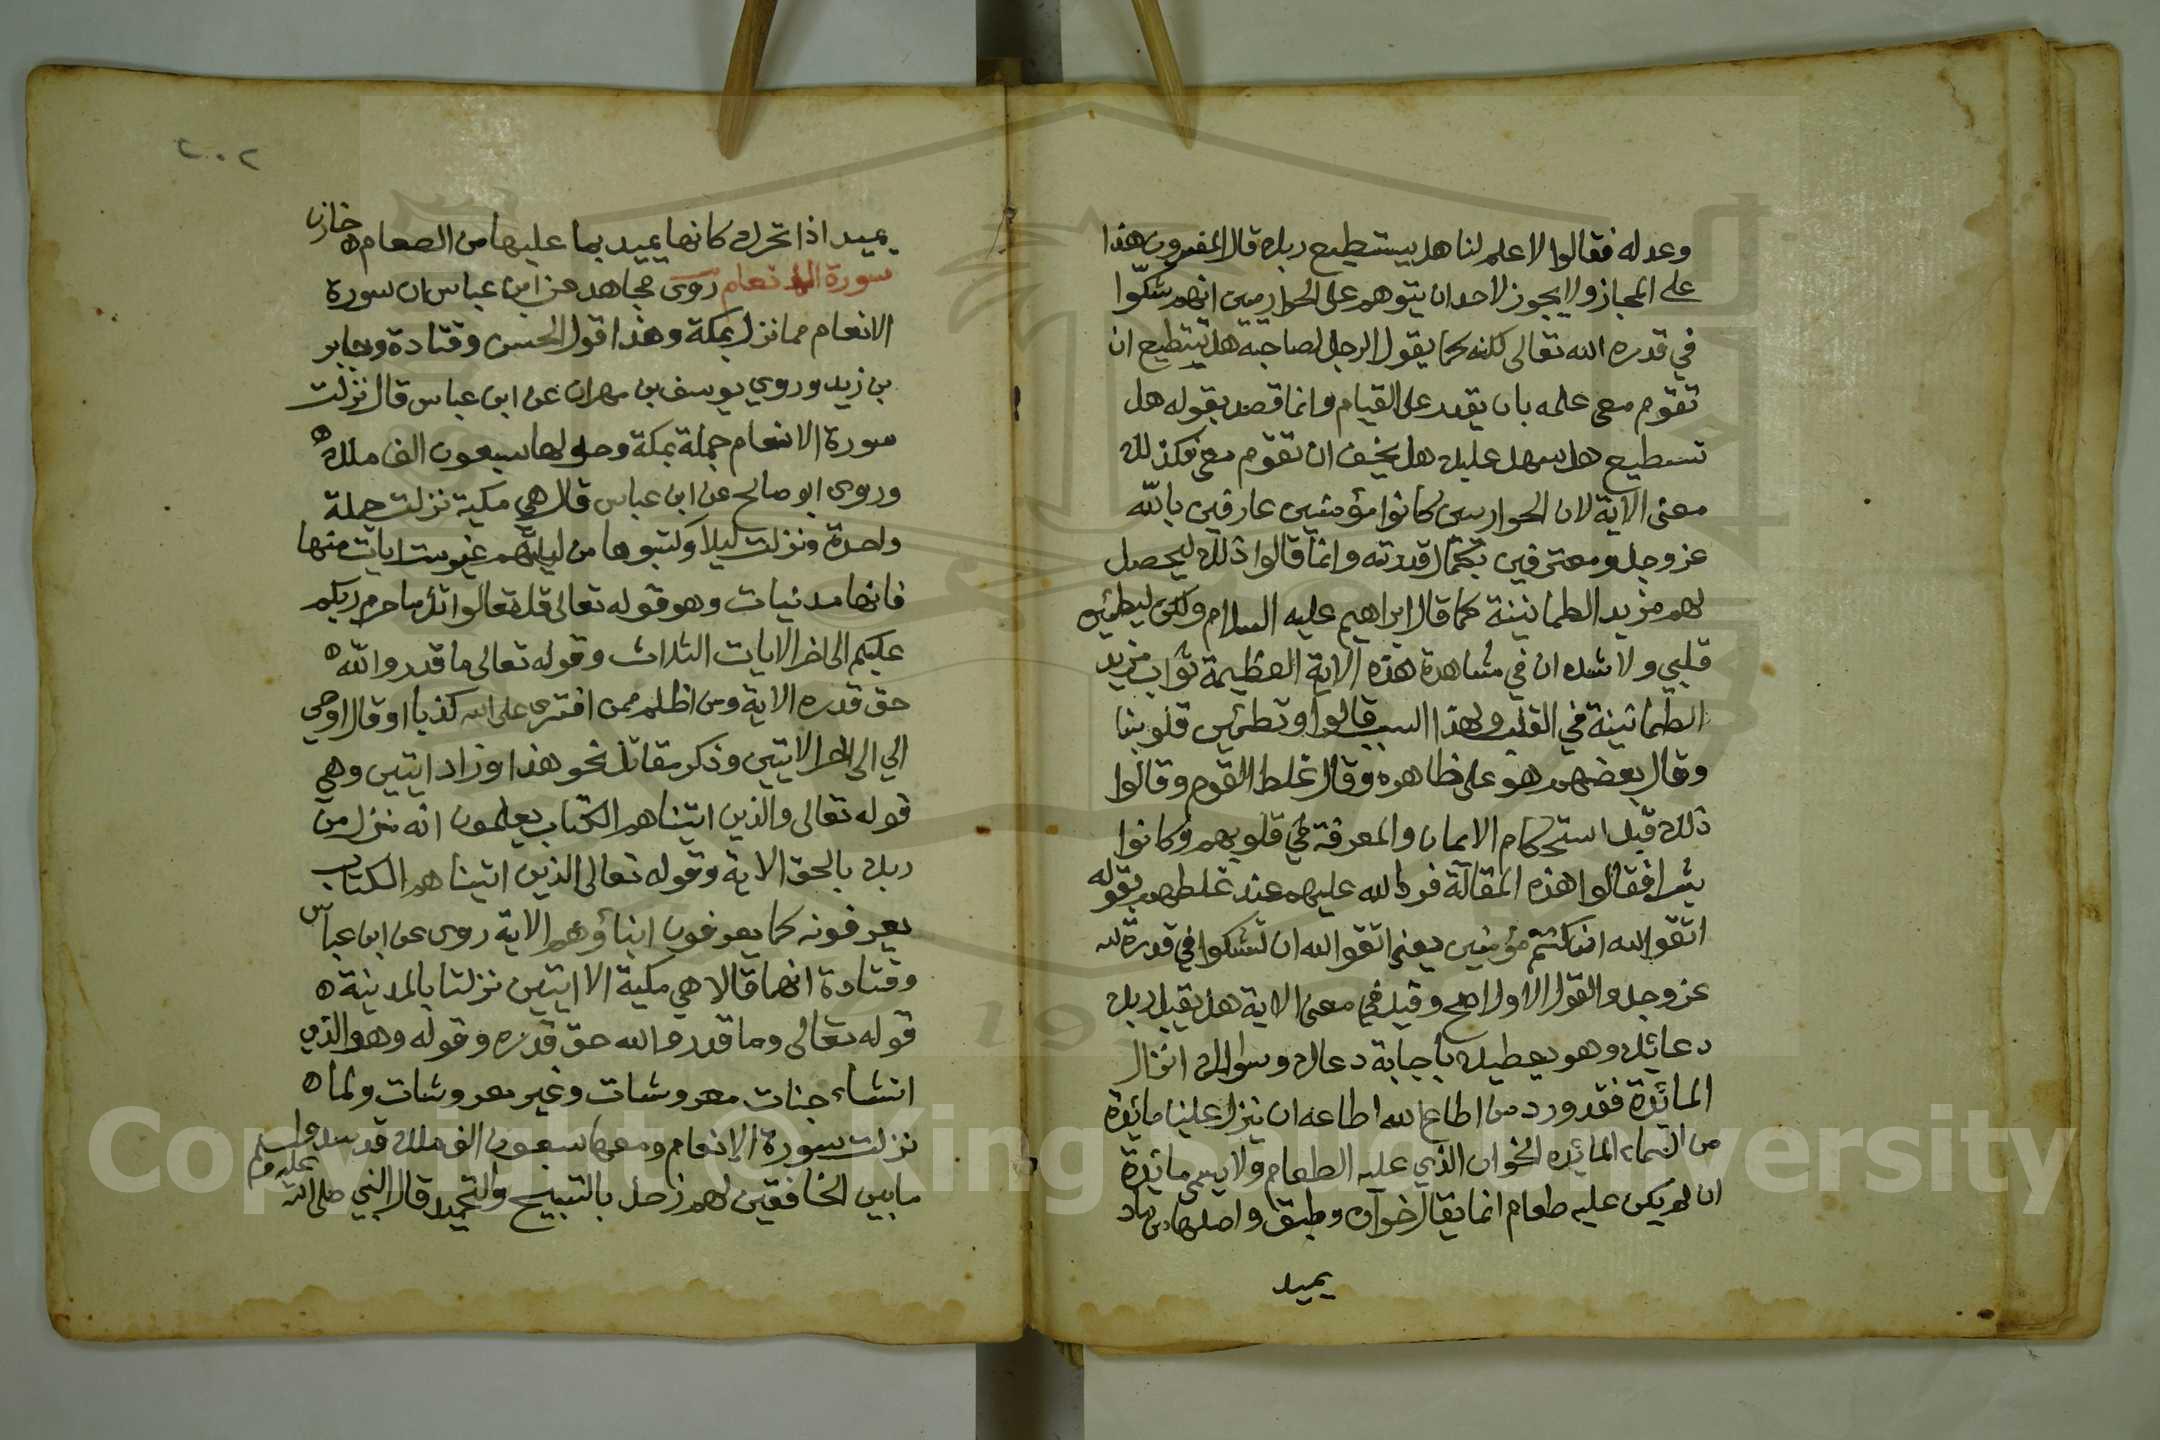 وعدله فقالوا لا علم لنا هل يستطيع ربك قال المفسرون هذا
على المجاز ولا يجوز لاحد ان يتوهم على الحواريين انهم شكّوا
في قدرة الله تعالى لكنه كما يقول الرجل لصاحبه هل تستطيع ان
تقوم معي علمه بان يقدر على القيام وانما قصد بقوله هل
تسطيع هل يسهل عليك هل يخف ان تقوم معي فكذلك
معنى الاية لان الحواريين كانوا مؤمنين عارفين بالله
عز وجل ومعترفين بكمال قدرته وانما قالوا ذلك ليحصل
لهم مزيد الطمانينة كما قال ابراهيم عليه السلام ولكن ليطمئن
قلبي ولا شك ان في مشاهدة هذه الاية العظيمة ثواب مزيد
الطمانينة في القلب ولهذا السبب قالوا وتطمئن قلوبنا
وقال بعضهم هو على ظاهره وقال غلط القوم وقالوا
ذلك قبل استحكام الايمان والمعرفة في قلوبهم وكانوا
بشرا فقالوا هذه المقالة فرد الله عليهم عند غلطهم بقوله
اتقوا الله ان كنتم مؤمنين يعني اتقوا الله ان تشكوا في قدرة الله
عز وجل والقول الاول اصح وقيل في معنى الاية هل يقبل ربك
دعائك وهو يعطيك باجابة دعاك وسوالك انزال
المائدة فقد ورد من اطاع الله اطاعه ان ينزل علينا مائدة
من السماء المائده الخوان الذي عليه الطعام ولا يسمى مائدة
ان لم يكن عليه طعام انما يقال خوان وطبق واصلها من ماد
يميد
٢٠٢
يميد اذا تحرك كانها يميد بما عليها من الطعام ه خازن
سورة الانعام روى مجاهد عن ابن عباس ان سورة
الانعام مما نزل بمكة وهذا قول الحسن وقتادة وجابر
بن زيد وروي يوسف بن مهران عن ابن عباس قال نزلت
سورة الانعام جملة بمكة وحولها سبعون الف ملك ه
وروى ابو صالح عن ابن عباس قال هي مكية نزلت جملة
واحدة ونزلت ليلا وكتبوها من ليلتهم غير ست ايات منها
فانها مدنيات وهو قوله تعالى قل تعالوا اتل ما حرم ربكم
عليكم الى اخر الايات الثلاث وقوله تعالى ما قدروا الله ه
حق قدره الاية ومن اظلم ممن افترى على الله كذبا او قال اوحي
الي الى اخر الايتين وذكر مقاتل نحو هذا وزاد ايتين وهي
قوله تعالى والذين اتيناهم الكتاب يعلمون انه منزل من
ربك بالحق الاية وقوله تعالى الذين اتيناهم الكتاب
يعرفونه كما يعرفون ابناؤهم الاية روى عن ابن عباس
وقتادة انهما قالا هي مكية الا ايتين نزلتا بالمدينة ه
قوله تعالى وما قدروا الله حق قدره وقوله وهو الذي
انشاء جنات معروشات وغير معروشات ولما ه
نزلت سورة الانعام ومعها سبعون الف ملك قد سد
ما بين الخافقين لهم زجل بالتسبيح والتحميد قال النبي صلى الله عليه وسلم